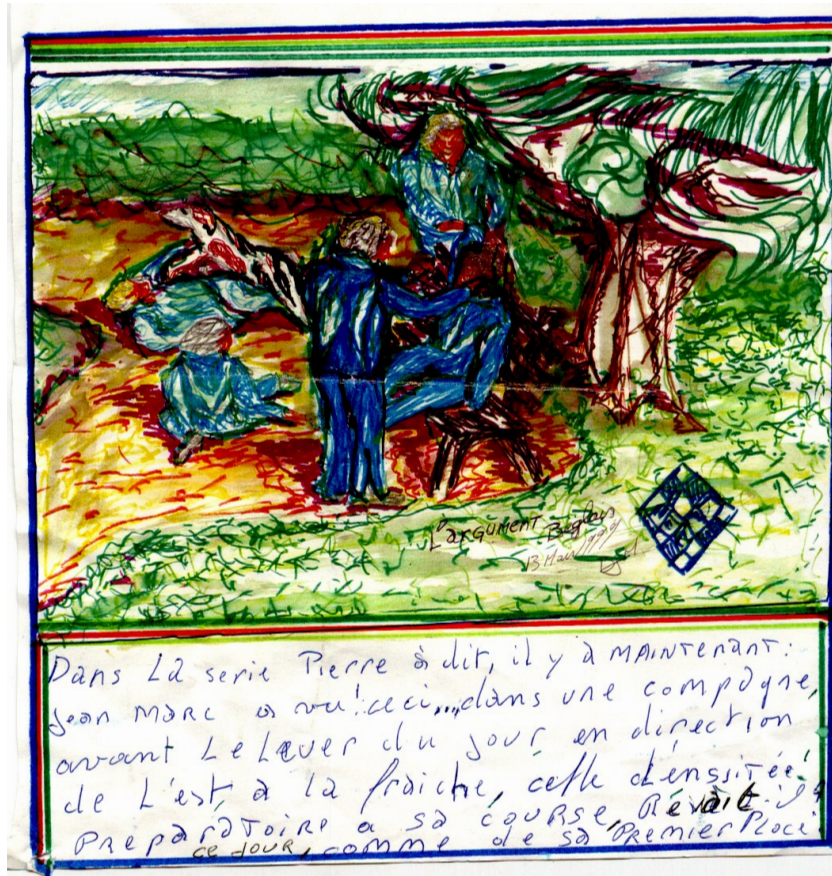 L'argument
13 1999
Dans La serie Pierre à dit, il y à MAINTENANT:
Jean MARC a vu! ceci... dans une compagne,
avant Le Lever du jour, en direction
de L'est, à la fraîche, cette densitée!
PREPARATOIRE a sa COURSE, Revait-il
ce JOUR, comme de sa PREMIER PLACE